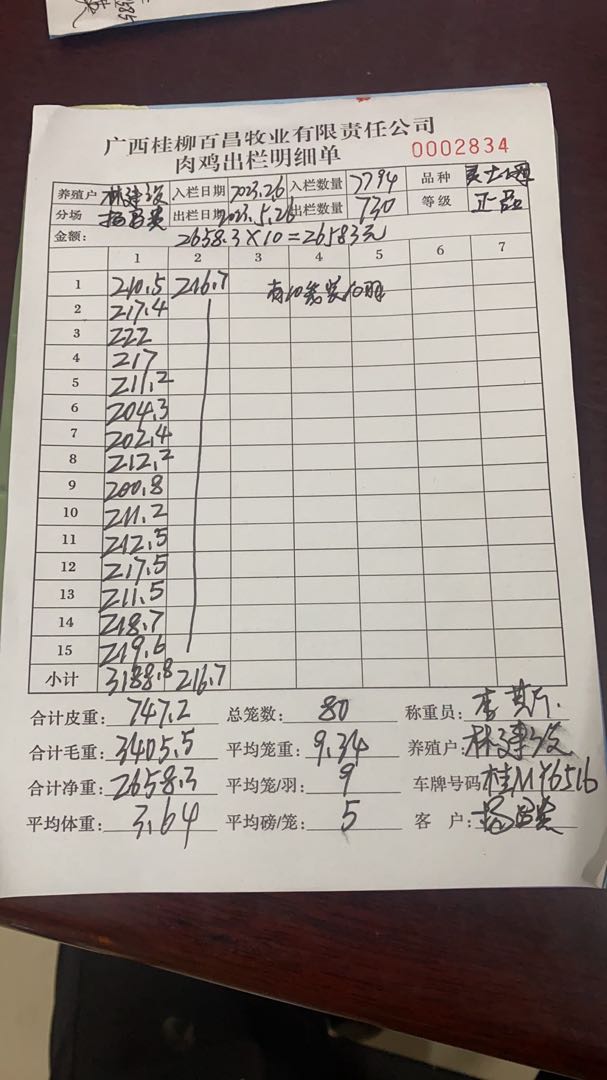 585
广西桂柳百昌牧业有限责任公司
肉鸡出栏明细单 0002834
养殖户 林建设 入栏日期 2023.2.6 入栏数量 7794 品种
分场 杨昌英 出栏日期 2023.5.26 出栏数量 730 等级 正品
金额: 2658.3×10=26583元
1 2 3 4 5 6 7
1 210.5 216.7 有10笼装10羽
2 217.4
3 222
4 217
5 211.2
6 204.3
7 202.4
8 212.2
9 200.8
10 211.2
11 212.5
12 217.5
13 211.5
14 218.7
15 219.6
小计 3188.8 216.7
合计皮重: 747.2 总笼数: 80 称重员: 李
合计毛重: 3405.5 平均笼重: 9.34 养殖户: 林建设
合计净重: 2658.3 平均笼/羽: 9 车牌号码 桂MY6516
平均体重: 3.64 平均磅/笼: 5 客 户: 杨昌英